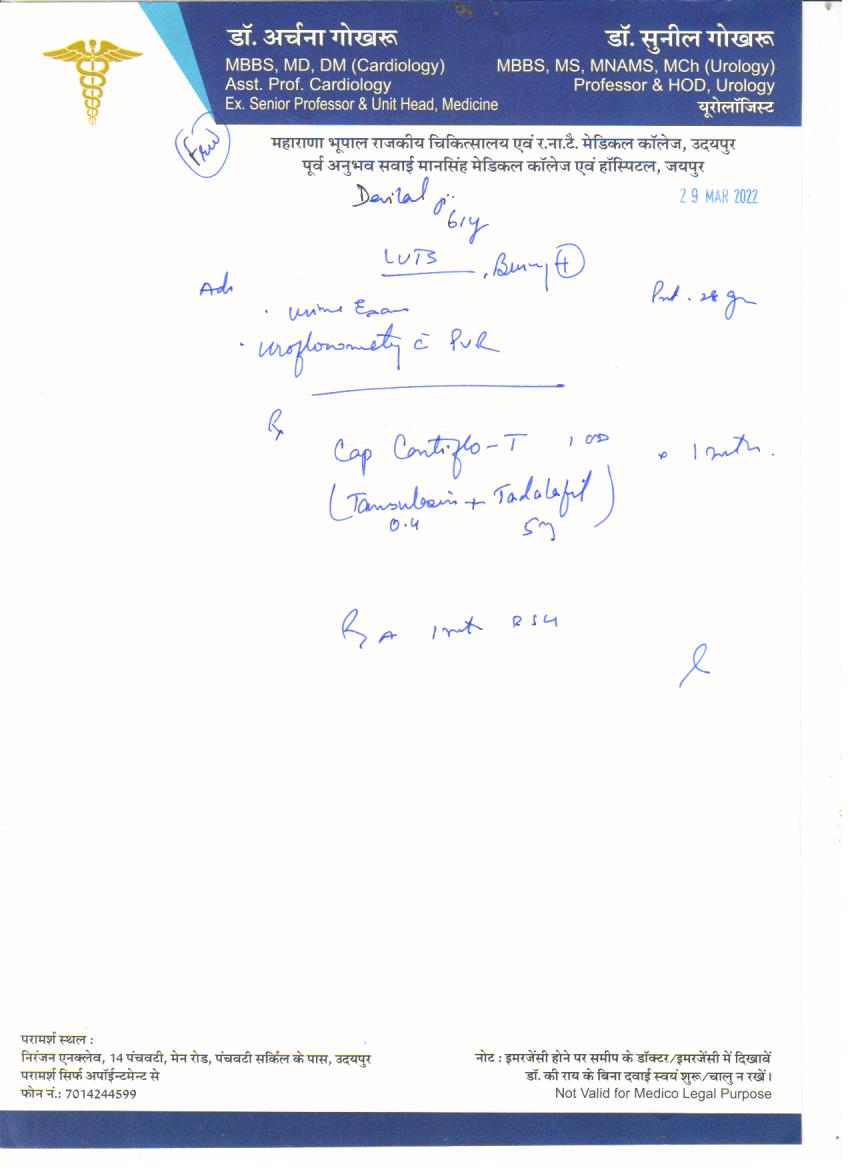 डॉ. अर्चना गोखरू
MBBS, MD, DM (Cardiology)
Asst. Prof. Cardiology
Ex. Senior Professor & Unit Head, Medicine
डॉ. सुनील गोखरू
MBBS, MS, MNAMS, MCh (Urology)
Professor & HOD, Urology
यूरोलॉजिस्ट
महाराणा भूपाल राजकीय चिकित्सालय एवं र.ना.टै. मेडिकल कॉलेज, उदयपुर
पूर्व अनुभव सवाई मानसिंह मेडिकल कॉलेज एवं हॉस्पिटल, जयपुर
29 MAR 2022
61y
LUTS
Adv
. Urine Exam
. Uroflowmetry c̄ PVR
Rx
Cap Contiflo-T 1 OD x 1 mth.
(Tamsulosin + Tadalafil)
0.4 5mg
परामर्श स्थल :
निरंजन एनक्लेव, 14 पंचवटी, मेन रोड, पंचवटी सर्किल के पास, उदयपुर
परामर्श सिर्फ अपॉईन्टमेन्ट से
फोन नं.: 7014244599
नोट : इमरजेंसी होने पर समीप के डॉक्टर/इमरजेंसी में दिखावें
डॉ. की राय के बिना दवाई स्वयं शुरू/चालु न रखें।
Not Valid for Medico Legal Purpose